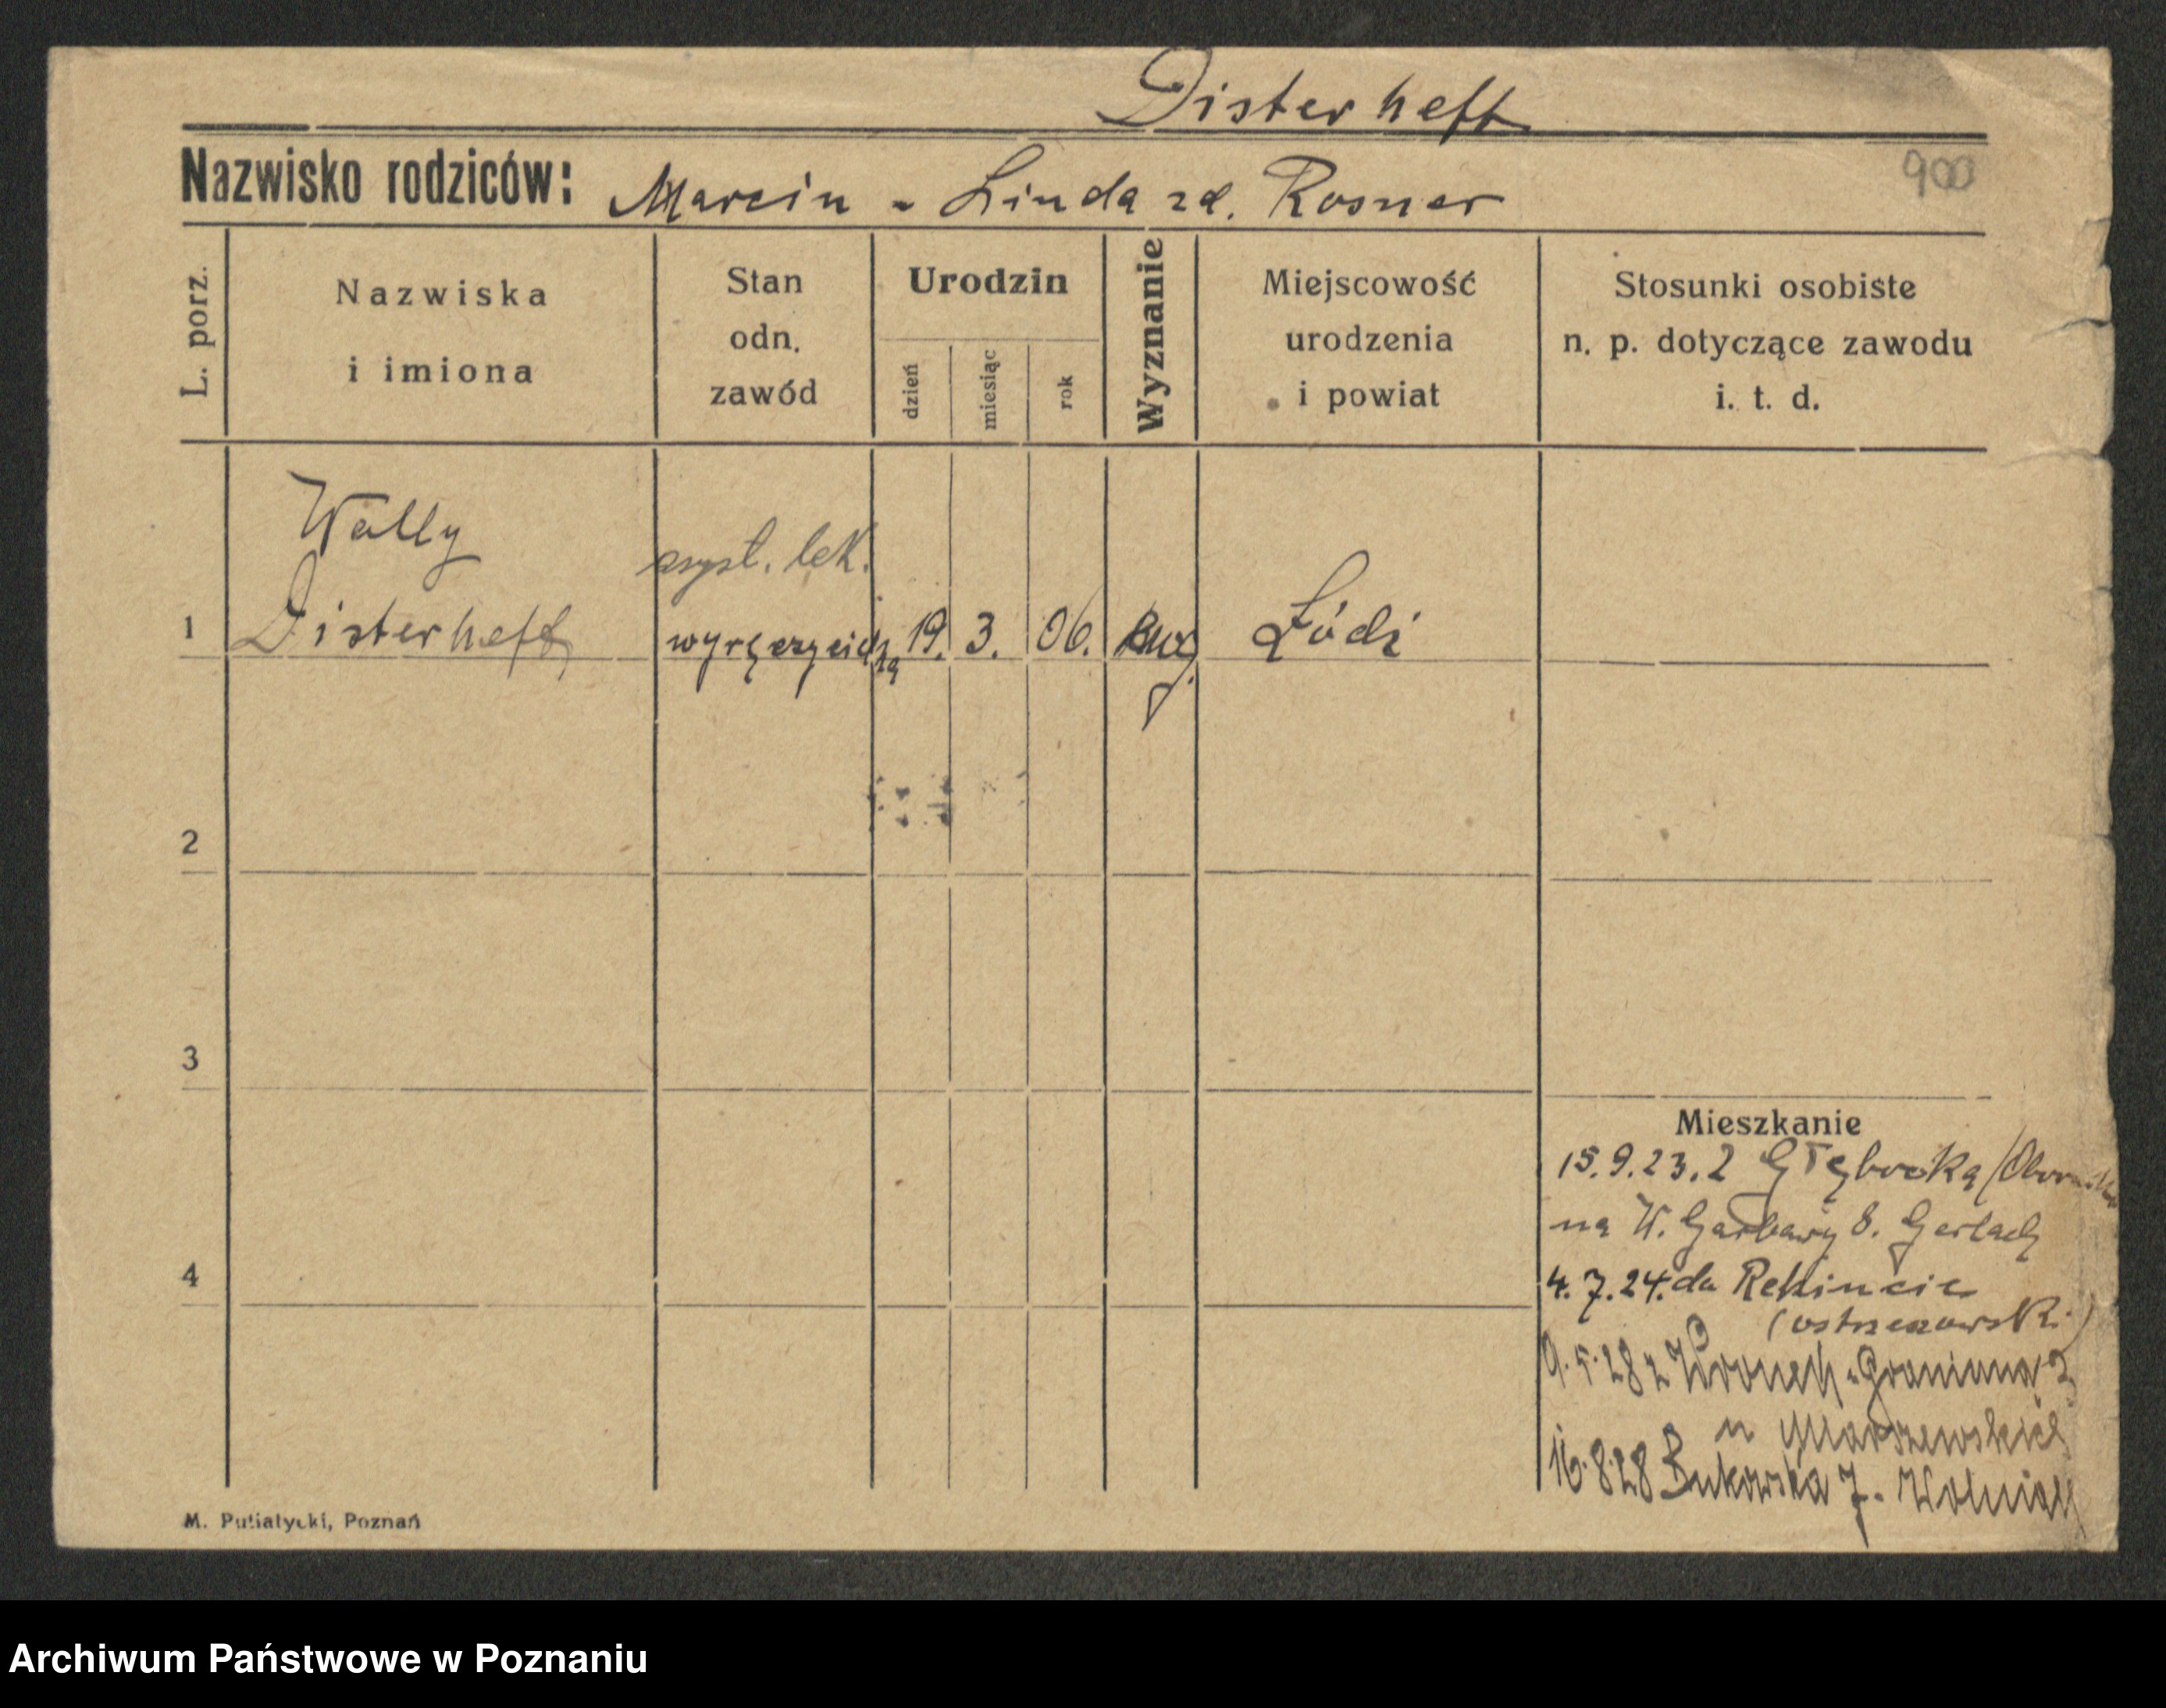 Disterheft
Nazwisko rodziców: Marcin - Linda zd. Rosner
900
L. porz.
Nazwiska
i imiona
Stan
odn.
zawód
Urodzin
dzień
miesiąc
rok
Wyznanie
Miejscowość
urodzenia
i powiat
Stosunki osobiste
n. p. dotyczące zawodu
i. t. d.
Wally
asyst. lek.
1 Disterheft 19. 3. 06. Łódź
2
3
4
Mieszkanie
15.9.23. z Głęboka
na W. Garbary 8. Gerlach
4.7.24. do
9.5.28 z Wronek - Graniczna
16.8.28 Bukowska 7.
M. Putiatycki, Poznań
Archiwum Państwowe w Poznaniu